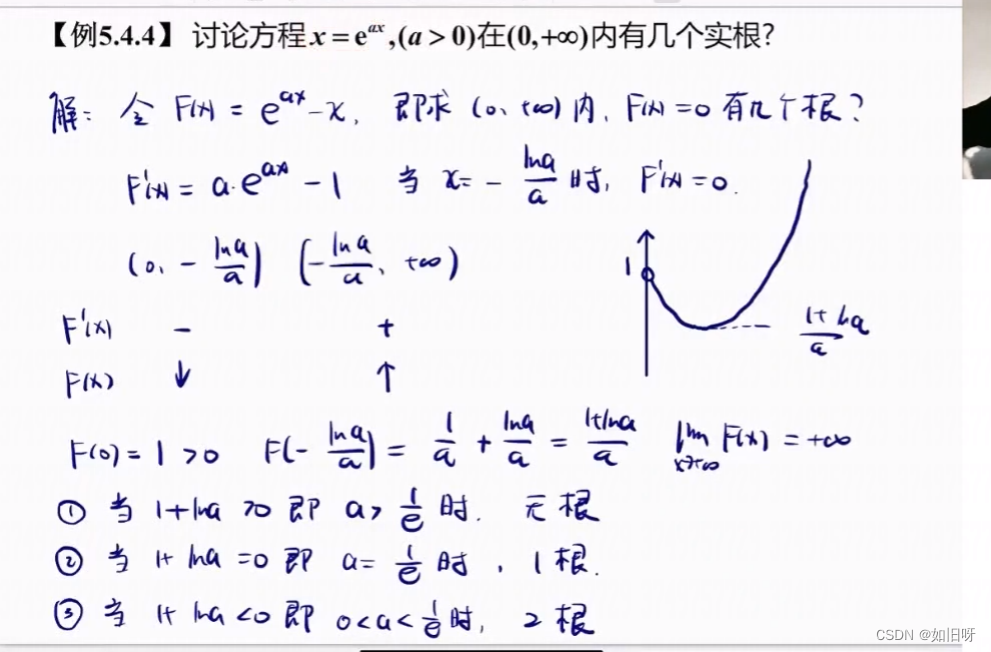 【例5.4.4】 讨论方程x=e^{ax},(a>0)在(0,+∞)内有几个实根?
解: 令 F(x) = e^{ax} - x, 即求 (0, +∞) 内, F(x) = 0 有几个根?
F'(x) = a·e^{ax} - 1 当 x = - \frac{lna}{a} 时, F'(x) = 0.
(0, - \frac{lna}{a}) (- \frac{lna}{a}, +∞)
1
\frac{1+lna}{a}
F'(x) - +
F(x) ↓ ↑
F(0) = 1 > 0 F(- \frac{lna}{a}) = \frac{1}{a} + \frac{lna}{a} = \frac{1+lna}{a} \lim_{x→+∞} F(x) = +∞
① 当 1+lna > 0 即 a > \frac{1}{e} 时. 无根
② 当 1+ lna = 0 即 a = \frac{1}{e} 时, 1根.
③ 当 1+ lna < 0 即 0 < a < \frac{1}{e} 时, 2根
CSDN @如旧呀